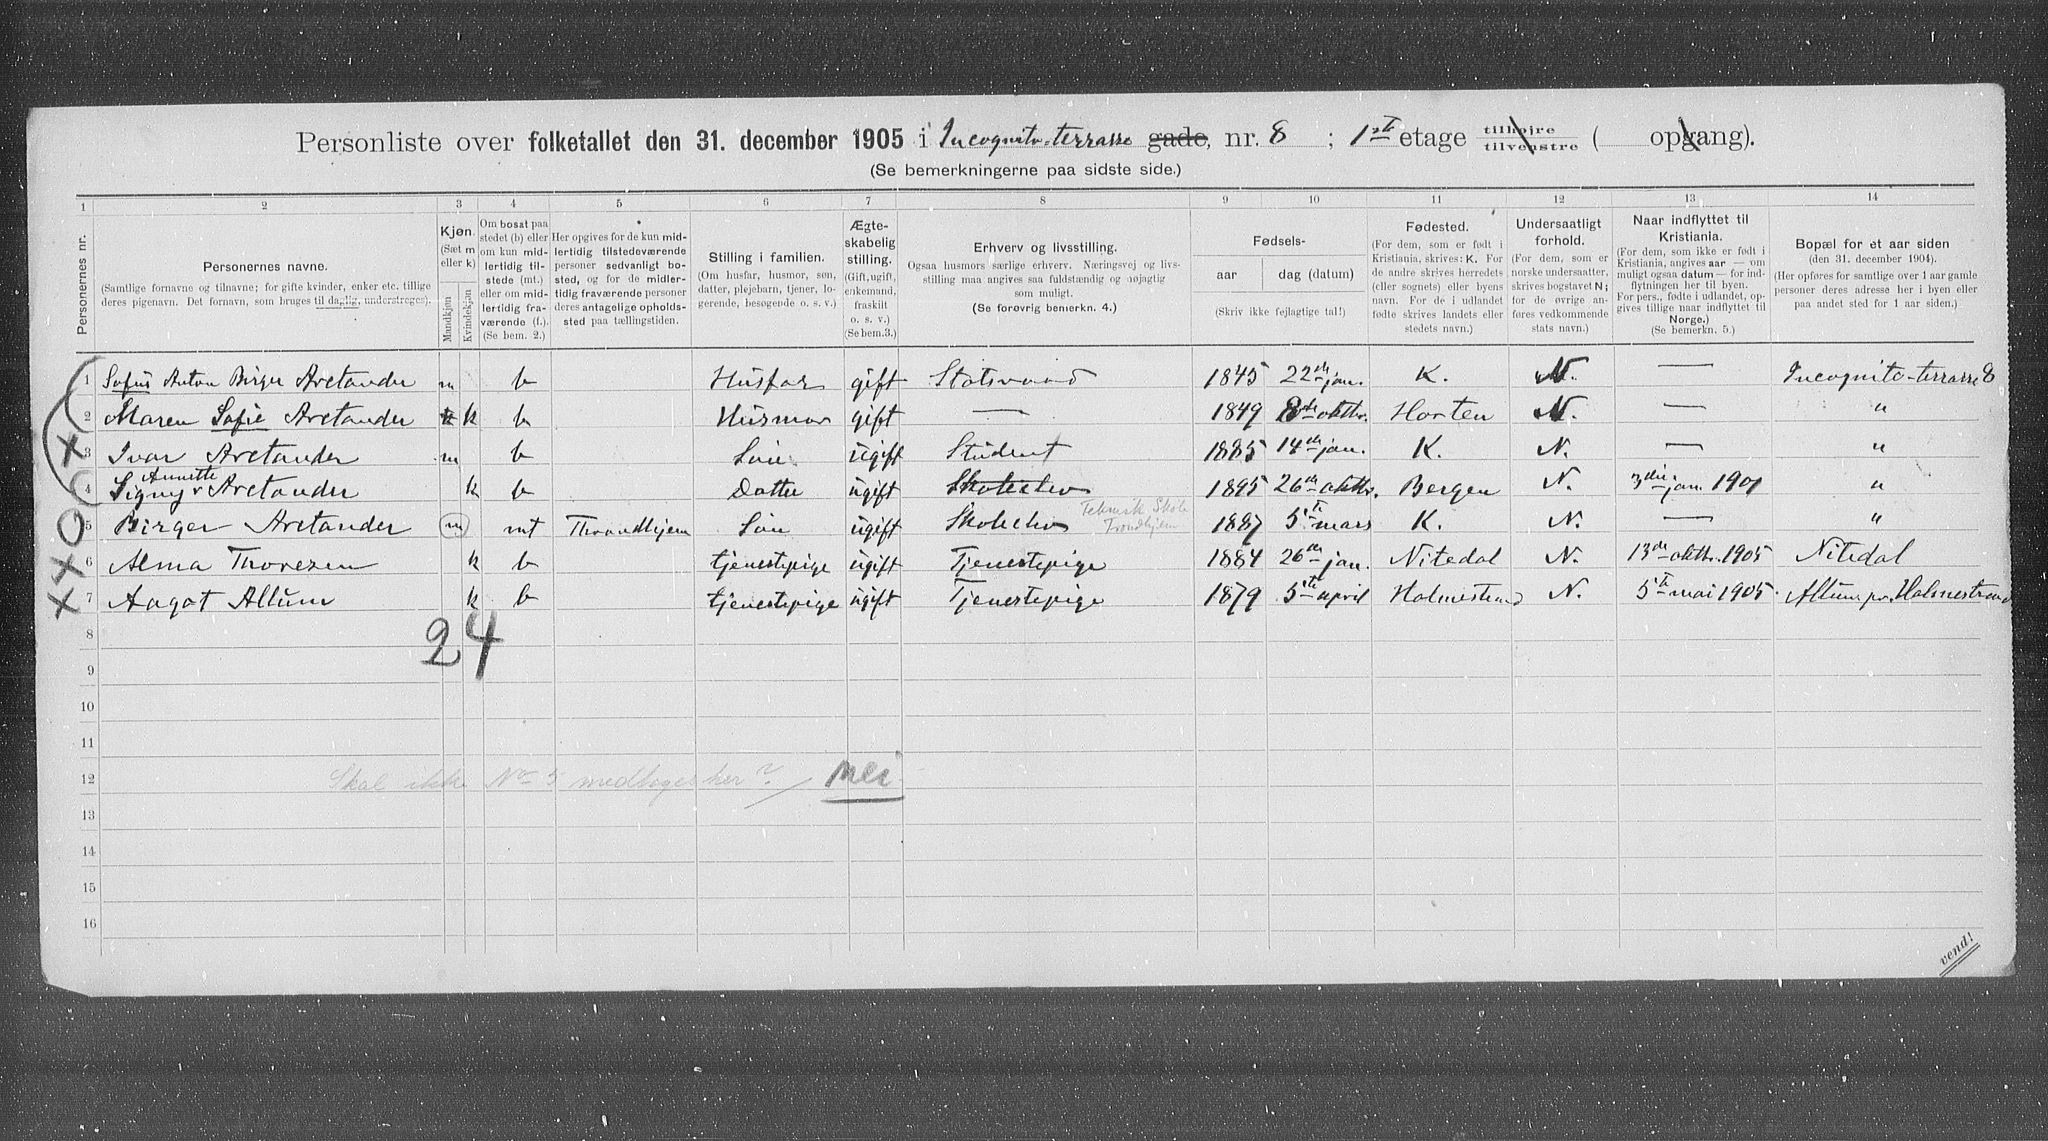 Personliste over folketallet den 31. december 1905 i Incognito-terrasse gade, nr. 8 ; 1ste etage tilhøjre tilvenstre ( opgang).
(Se bemerkningerne paa sidste side.)
1 2 3 4 5 6 7 8 9 10 11 12 13 14
Personernes nr.
Personernes navne.
(Samtlige fornavne og tilnavne; for gifte kvinder, enker etc. tillige
deres pigenavn. Det fornavn, som bruges til daglig, understreges).
Kjøn.
(Sæt m
eller k)
Mandkjøn
Kvindekjøn
Om bosat paa
stedet (b) eller
om kun mid-
lertidig til-
stede (mt.)
eller om mid-
lertidig fra-
værende (f.).
(Se bem. 2.)
Her opgives for de kun mid-
lertidig tilstedeværende
personer sedvanlig bo-
sted, og for de midler-
tidig fraværende personer
deres antagelige opholds-
sted paa tællingstiden.
Stilling i familien.
(Om husfar, husmor, søn,
datter, plejebarn, tjener, lo-
gerende, besøgende o. s. v.)
Ægte-
skabelig
stilling.
(Gift, ugift,
enkemand,
fraskilt
o. s. v.)
(Se bem. 3.)
Erhverv og livsstilling.
Ogsaa husmors særlige erhverv. Næringsvej og livs-
stilling maa angives saa fuldstændig og nøjagtig
som muligt.
(Se forøvrig bemerkn. 4.)
Fødsels-
aar dag (datum)
(Skriv ikke fejlagtige tal!)
Fødested.
(For dem, som er født i
Kristiania, skrives: K. For
de andre skrives herredets
(eller sognets) eller byens
navn. For de i udlandet
fødte skrives landets eller
stedets navn.)
Undersaatligt
forhold.
(For dem, som er
norske undersaatter,
skrives bogstavet N;
for de øvrige an-
føres vedkommende
stats navn.)
Naar indflyttet til
Kristiania.
(For dem, som ikke er født i
Kristiania, angives aar — om
muligt ogsaa datum — for ind-
flytningen her til byen.
For pers., fødte i udlandet, op-
gives tillige naar indflyttet til
Norge.)
(Se bemerkn. 5.)
Bopæl for et aar siden
(den 31. december 1904).
(Her opføres for samtlige over 1 aar gamle
personer deres adresse her i byen eller
paa andet sted for 1 aar siden.)
1 Sofus Anton Birger Arctander m b Husfar gift Statsraad 1845 22de jan. K. N. — Incognito-terrasse 8
2 Maren Sofie Arctander k b Husmor gift — 1849 8de oktbr. Horten N. — "
3 Ivar Arctander m b Søn ugift Student 1885 14de jan. K. N. — "
4 Signy Annette Arctander k b Datter ugift Skoleelev 1895 26de oktbr. Bergen N. 3die jan. 1901 "
5 Birger Arctander m mt Throndhjem Søn ugift Skoleelev Teknisk Skole Trondhjem 1887 5te mars K. N. — "
6 Alma Thoresen k b tjenestepige ugift Tjenestepige 1884 26de jan. Nitedal N. 13de oktbr. 1905 Nitedal
7 Aagot Allum k b tjenestepige ugift Tjenestepige 1879 5te april Holmestrand N. 5te mai 1905. Allum pr. Holmestrand
8
2 4
9
10
11
12 Skal ikke No 5 medtages her? / Nei
13
14
15
16
vend!